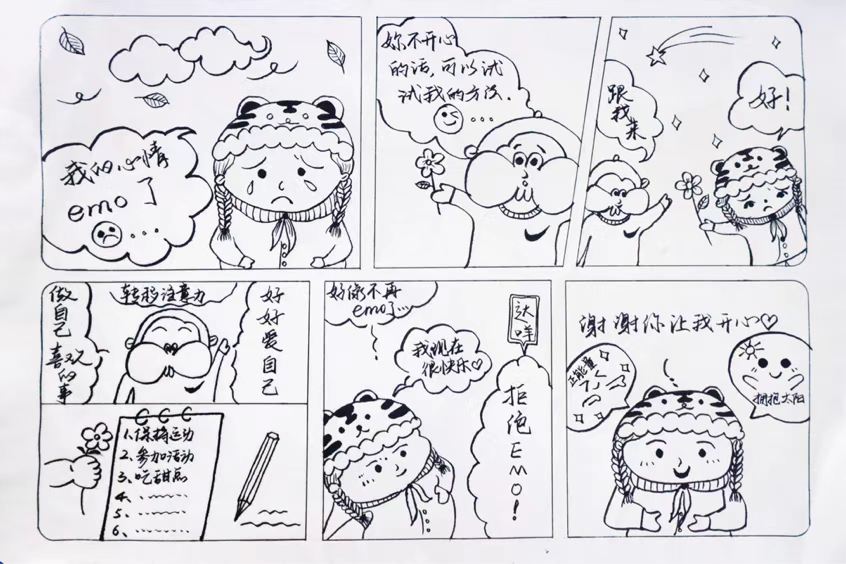 我的心情
emo了
....
你不开心
的话,可以试
试我的方法.
...
跟我来
好!
做自己喜欢的事
转移注意力
好好爱自己
1、保持运动
2、参加活动
3、吃甜点
4、
5、
6、
好像不再
emo了...
我现在
很快乐♡
达咩
拒绝EMO!
谢谢你让我开心♡
正能量
拥抱太阳